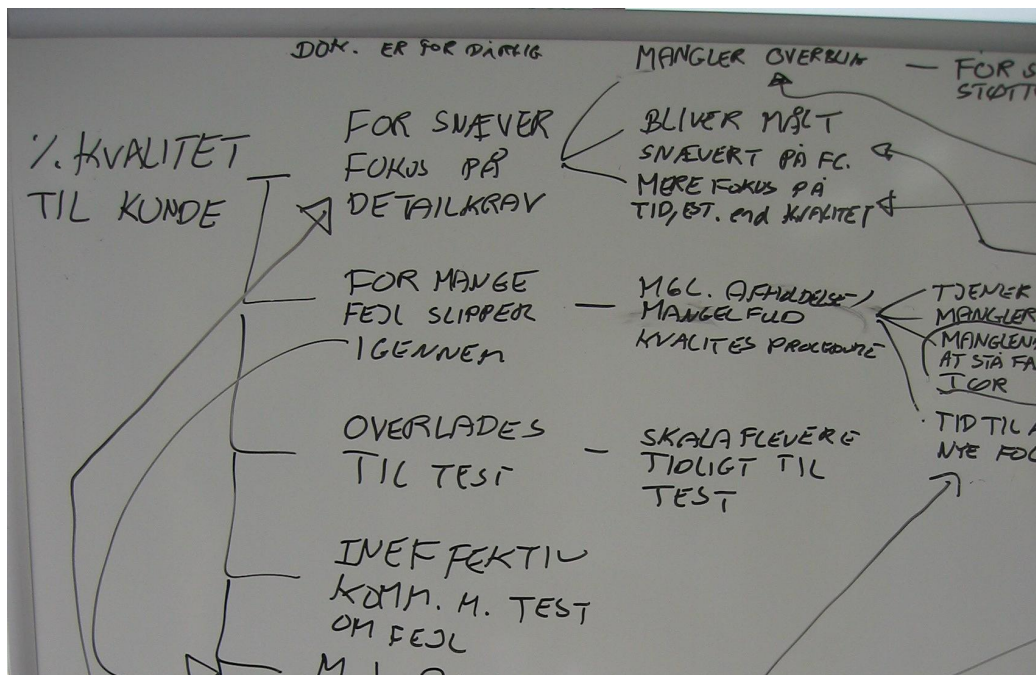 DOK. ER FOR DÅRLIG
÷ KVALITET
TIL KUNDE
FOR SNÆVER
FOKUS PÅ
DETAILKRAV
MANGLER OVERBLIK
— FOR S
STØTT
BLIVER MÅLT
SNÆVERT PÅ FC.
MERE FOKUS PÅ
TID, EST. end KVALITET
FOR MANGE
FEJL SLIPPER
IGENNEM
— MGL. AFHOLDELSE/
MANGELFULD
KVALITES PROCEDURE
TJENER
MANGLER
MANGLEN
AT STÅ FA
TID TIL A
NYE FOC
OVERLADES
TIL TEST
— SKAL AFLEVERE
TIDLIGT TIL
TEST
INEFFEKTIV
KOMM. M. TEST
OM FEJL